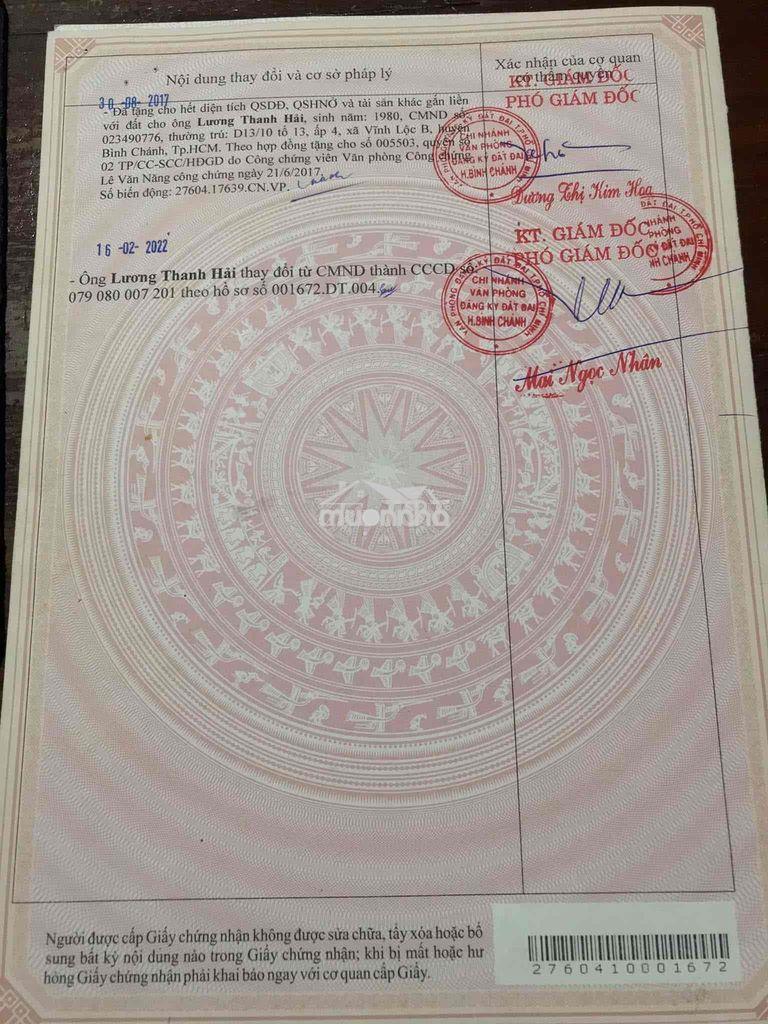 Nội dung thay đổi và cơ sở pháp lý
Xác nhận của cơ quan
có thẩm quyền
30 -08- 2017
- Đã tặng cho hết diện tích QSDĐ, QSHNỞ và tài sản khác gắn liền
với đất cho ông Lương Thanh Hải, sinh năm: 1980, CMND số
023490776, thường trú: D13/10 tổ 13, ấp 4, xã Vĩnh Lộc B, huyện
Bình Chánh, Tp.HCM. Theo hợp đồng tặng cho số 005503, quyển số
02 TP/CC-SCC/HĐGD do Công chứng viên Văn phòng Công chứng
Lê Văn Năng công chứng ngày 21/6/2017.
Số biến động: 27604.17639.CN.VP.
KT. GIÁM ĐỐC
PHÓ GIÁM ĐỐC
CHI NHÁNH
VĂN PHÒNG
ĐĂNG KÝ ĐẤT ĐAI
H.BÌNH CHÁNH
Dương Thị Kim Hoa
16 -02- 2022
- Ông Lương Thanh Hải thay đổi từ CMND thành CCCD số:
079 080 007 201 theo hồ sơ số 001672.DT.004.
KT. GIÁM ĐỐC
PHÓ GIÁM ĐỐC
VĂN PHÒNG ĐĂNG KÝ ĐẤT ĐAI T.P HỒ CHÍ MINH
CHI NHÁNH
VĂN PHÒNG
ĐĂNG KÝ ĐẤT ĐAI
H.BÌNH CHÁNH
Mai Ngọc Nhân
muonnha
Người được cấp Giấy chứng nhận không được sửa chữa, tẩy xóa hoặc bổ
sung bất kỳ nội dung nào trong Giấy chứng nhận; khi bị mất hoặc hư
hỏng Giấy chứng nhận phải khai báo ngay với cơ quan cấp Giấy.
2760410001672